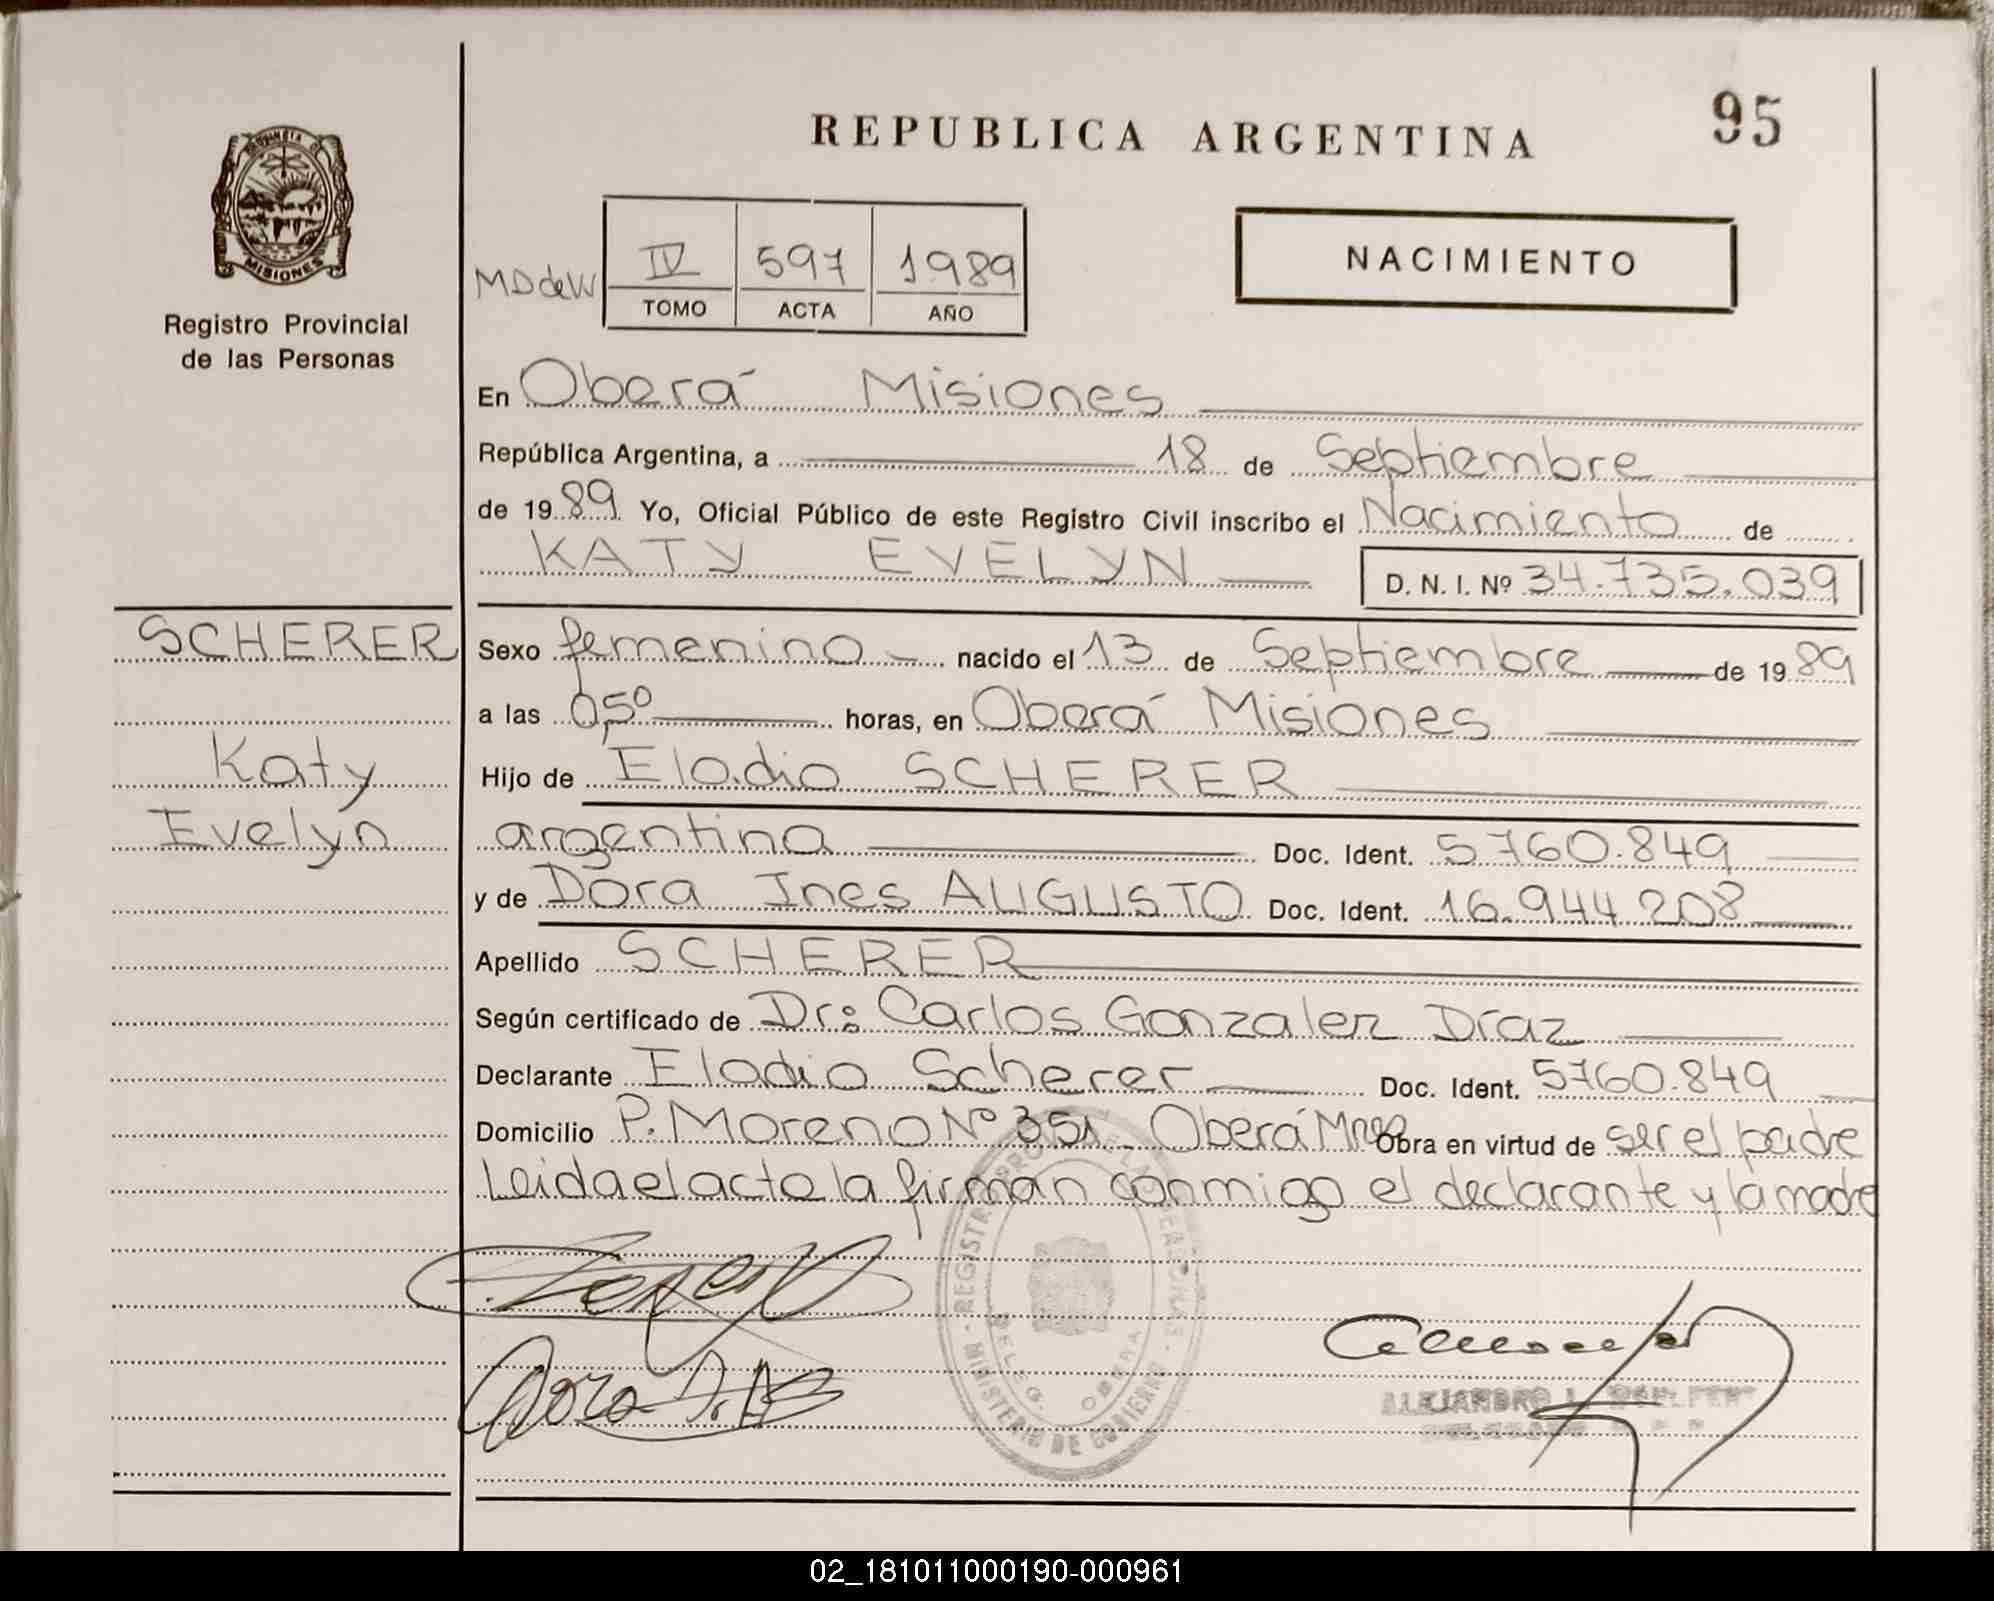 REPUBLICA ARGENTINA
95
PROVINCIA D
MISIONES
Registro Provincial
de las Personas
MDdeW
IV 597 1989
TOMO ACTA AÑO
NACIMIENTO
En Oberá Misiones
República Argentina, a 18 de Septiembre
de 1989 Yo, Oficial Público de este Registro Civil inscribo el Nacimiento de
KATY EVELYN D. N. I. Nº 34.735.039
SCHERER
Katy
Evelyn
Sexo femenino nacido el 13 de Septiembre de 1989
a las 0,5º horas, en Oberá Misiones
Hijo de Eladio SCHERER
argentina Doc. Ident. 5760.849
y de Dora Ines AUGUSTO Doc. Ident. 16.944.208
Apellido SCHERER
Según certificado de Dr: Carlos Gonzalez Díaz
Declarante Eladio Scherer Doc. Ident. 5760.849
Domicilio P. Moreno Nº 351 Oberá Mnes Obra en virtud de ser el padre
Leida el acta la firman conmigo el declarante y la madre
REGISTRO PROV. DE LAS PERSONAS
DELEG. OBERA
MINISTERIO DE GOBIERNO
Dora
ALEJANDRO
02_181011000190-000961